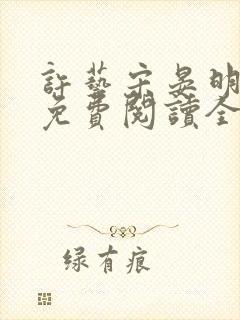 許藝宋晏明
免費閱讀全
绿有痕